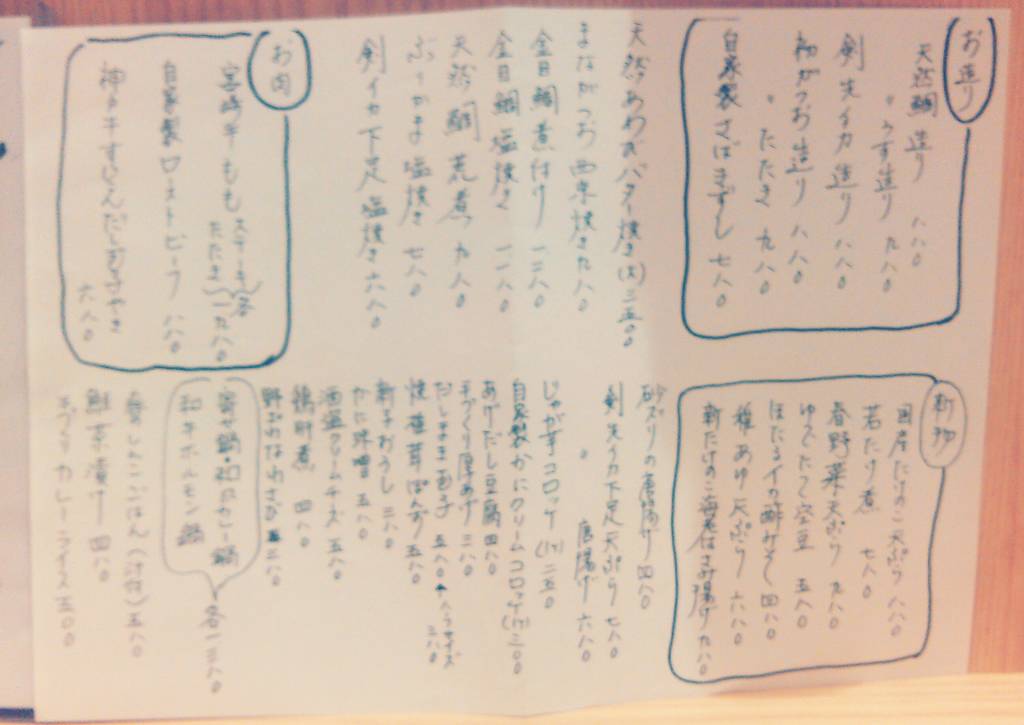 お造り
天然鯛 造り 八八〇
〃 うす造り 九八〇
剣先イカ 造り 八八〇
初がつお 造り 八八〇
〃 たたき 九八〇
自家製 さばきずし 七八〇
天然あわびバター焼き(大)二五〇〇
まながつお 西京焼き 九八〇
金目鯛 煮付け 一二八〇
金目鯛 塩焼き 一一八〇
天然鯛 荒煮 九八〇
ぶりかま 塩焼き 七八〇
剣イカ下足 塩焼き 六八〇
お肉
宮崎牛もも ステーキ たたき 各一九八〇
自家製ローストビーフ 八八〇
神戸牛すじ
六八〇
新物
国産たけのこ天ぷら 八八〇
若たけ煮 七八〇
春野菜天ぷら 九八〇
ゆでたて空豆 五八〇
ほたるイカ酢みそ 四八〇
稚あゆ天ぷら 六八〇
新たけのこ海老はさみ揚げ 九八〇
砂ズリの唐揚げ 四八〇
剣先イカ下足天ぷら 七八〇
〃 唐揚げ 六八〇
じゃが芋コロッケ(1ケ)二五〇
自家製かにクリームコロッケ(1ケ)三〇〇
あげだし豆腐 四八〇
手づくり厚あげ 三八〇
だしまき玉子 五八〇 ▲ハーフサイズ 三八〇
長芋ぽん酢 五八〇
新子おろし 三八〇
かに味噌 五八〇
酒盗クリームチーズ 五八〇
鶏肝煮 四八〇
野ぶわさび 三八〇
和風カレー鍋
和牛ホルモン鍋
各一三八〇
ごはん(汁付)五八〇
鮭茶漬け 四八〇
手づくりカレーライス 五〇〇